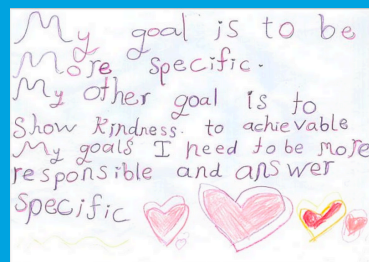 My goal is to be
More specific.
My other goal is to
Show Kindness. to achievable
My goals I need to be more
responsible and answer
specific